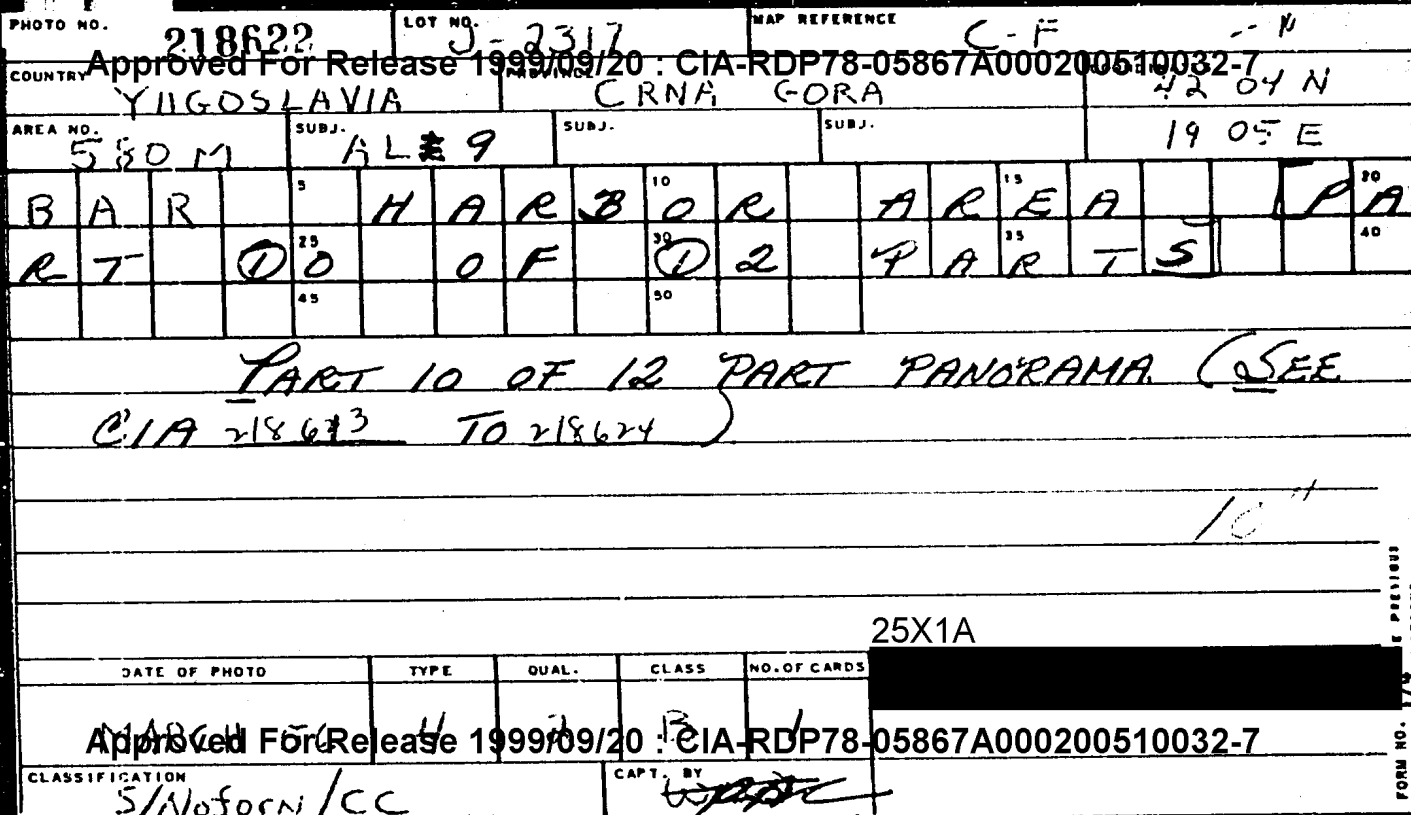 PHOTO NO. 218622 LOT NO. J-2317 MAP REFERENCE C-F
Approved For Release 1999/09/20 : CIA-RDP78-05867A000200510032-7
COUNTRY YUGOSLAVIA CRNA GORA 42 04 N
AREA NO. 580M SUBJ. AL 9 SUBJ. SUBJ. 19 05 E
BAR 5 HARB 10 OR ARE 15 A (P 20 A
RT 1 25 0 OF 30 12 PAR 35 TS 40
45 50
PART 10 OF 12 PART PANORAMA (SEE
CIA 218613 TO 218624)
10"
25X1A
DATE OF PHOTO TYPE QUAL. CLASS NO. OF CARDS
MARCH 4 B 1
Approved For Release 1999/09/20 : CIA-RDP78-05867A000200510032-7
CLASSIFICATION S/Noforn/CC CAPT. BY
FORM NO.